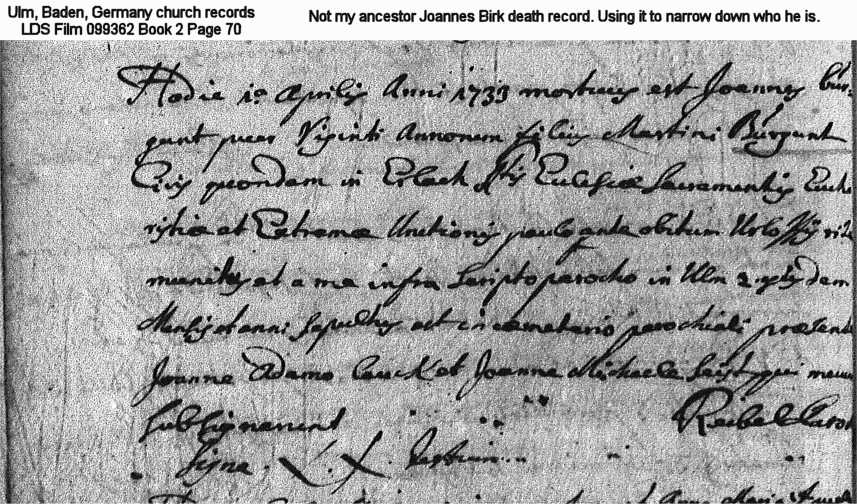 Ulm, Baden, Germany church records
LDS Film 099362 Book 2 Page 70
Not my ancestor Joannes Birk death record. Using it to narrow down who he is.
Hodie 1o Aprilis Anni 1733 mortuus est Joannes bur-
gunt puer Viginti Annorum filius Martini Burgunt
Civis quondam in Erlach Stis Eclesiæ Sacramentis Eucha
ristiæ et Extremæ Unctionis paulo ante obitum rite
munitus et a me infra scripto parocho in Ulm 2 ejusdem
Mensis et anni sepultus est in cæmeterio parochiali præsente
Joanne Adamo et Joanne Michaele Seist qui mecum
subsignarunt
Signa X. X. testium